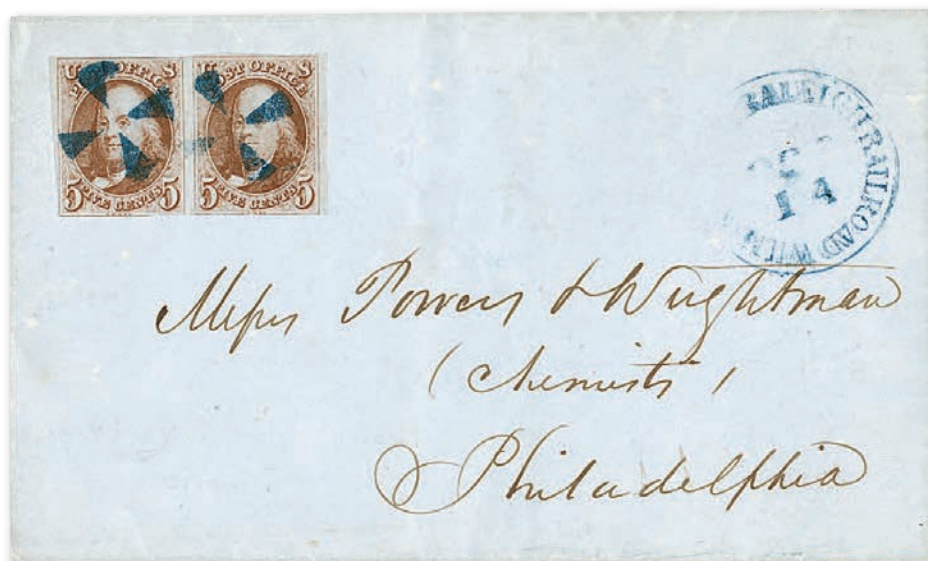 U POST OFFICE S
5 FIVE CENTS 5
U POST OFFICE S
5 FIVE CENTS 5
RALEIGH RAILROAD
14
Messrs Powers & Wightman
(Chemists)
Philadelphia